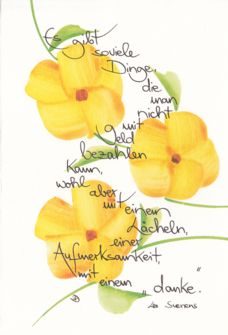 Es gibt
soviele
Dinge,
die
man
nicht
mit
Geld
bezahlen
kann,
wohl
aber
mit
einem
Lächeln,
einer
Aufmerksamkeit,
mit
einem
„danke.“